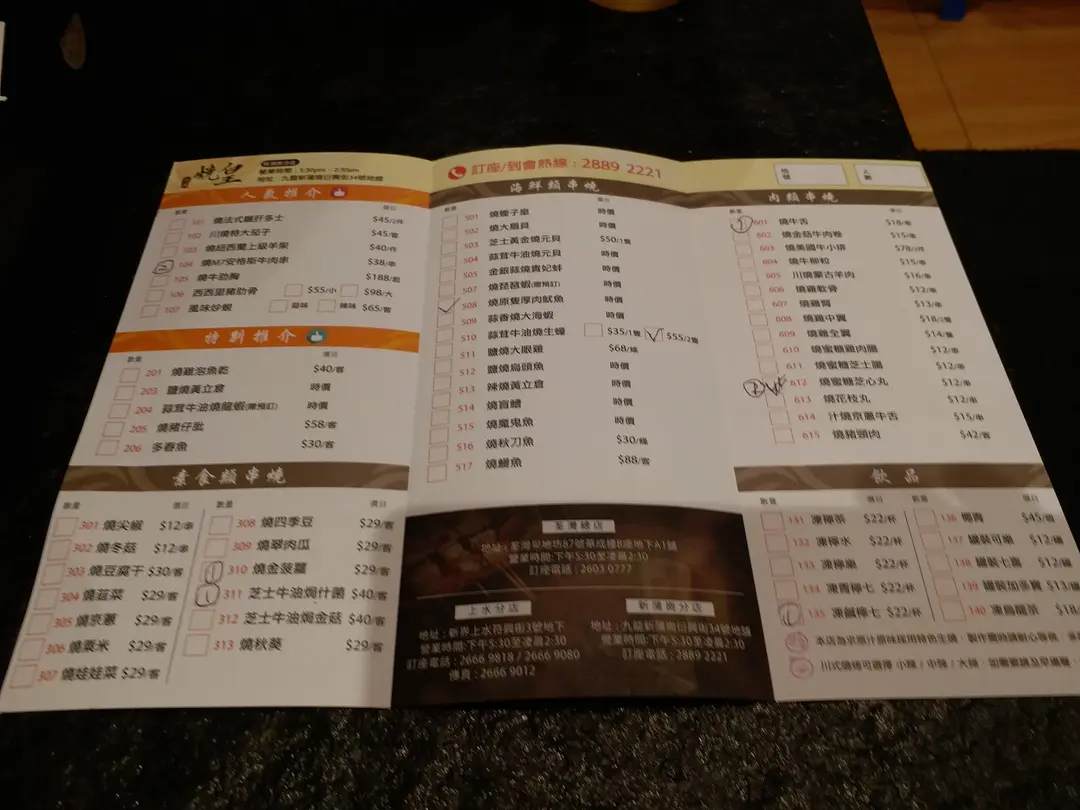 燒皇
營業時間：5:30pm - 2:30am
地址：九龍新蒲崗衍慶街34號地舖
訂座/到會熱線：2889 2221
人氣推介
數量 項目
101 燒法式鵝肝多士 $45/2件
102 川燒特大茄子 $45/客
103 燒紐西蘭上級羊架 $40/件
104 燒M7安格斯牛肉串 $38/串
105 燒牛肋胸 $188/地
106 西西里豬肋骨 $55/小 $98/大
107 風味炒蜆 蒜味 辣味 $65/客
特別推介
數量 項目
201 燒雞泡魚乾 $40/客
203 鹽燒黃立倉 時價
204 蒜茸牛油燒龍蝦(需預訂) 時價
205 燒豬仔肶 $58/客
206 多春魚 $30/客
素食類串燒
數量 項目 數量 項目
301 燒尖椒 $12/串
302 燒冬菇 $12/串
303 燒豆腐干 $30/客
304 燒韮菜 $29/客
305 燒京蔥 $29/客
306 燒粟米 $29/客
307 燒娃娃菜 $29/客
308 燒四季豆 $29/客
309 燒翠肉瓜 $29/客
310 燒金菠蘿 $29/客
311 芝士牛油焗什菌 $40/客
312 芝士牛油焗金菇 $40/客
313 燒秋葵 $29/客
海鮮類串燒
數量 項目
501 燒蟶子皇 時價
502 燒大扇貝 時價
503 芝士黃金燒元貝 $50/1隻
504 蒜茸牛油燒元貝 時價
505 金銀蒜燒貴妃蚌 時價
507 燒琵琶蝦(需預訂) 時價
508 燒原隻厚肉魷魚 時價
509 蒜香燒大海蝦 時價
510 蒜茸牛油燒生蠔 $35/1隻 $55/2隻
511 鹽燒大眼雞 $68/條
512 鹽燒烏頭魚 時價
513 辣燒黃立倉 時價
514 燒盲鰽 時價
515 燒魔鬼魚 時價
516 燒秋刀魚 $30/條
517 燒鰻魚 $88/客
荃灣總店
地址：荃灣眾安坊87號華成樓B座地下A1舖
營業時間：下午5:30至凌晨2:30
訂座電話：2603 0777
上水分店
地址：新界上水符興街3號地下
營業時間：下午5:30至凌晨2:30
訂座電話：2666 9818 / 2666 9080
傳真：2666 9012
新蒲崗分店
地址：九龍新蒲崗衍慶街34號地舖
營業時間：下午5:30至凌晨2:30
訂座電話：2889 2221
檯號 人數
肉類串燒
數量 項目
601 燒牛舌 $18/串
602 燒金菇牛肉卷 $15/串
603 燒美國牛小排 $78/2件
604 燒牛柳粒 $15/串
605 川燒蒙古羊肉 $16/串
606 燒雞軟骨 $12/串
607 燒雞腎 $13/串
608 燒雞中翼 $18/2隻
609 燒雞全翼 $14/隻
610 燒蜜糖雞肉腸 $12/串
611 燒蜜糖芝士腸 $12/串
612 燒蜜糖芝心丸 $12/串
613 燒花枝丸 $12/串
614 汁燒京蔥牛舌 $15/串
615 燒豬頸肉 $42/客
飲品
數量 項目 數量 項目
131 凍檸茶 $22/杯
132 凍檸水 $22/杯
133 凍檸樂 $22/杯
134 凍青檸七 $22/杯
135 凍鹹檸七 $22/杯
136 椰青 $45/個
137 罐裝可樂 $12/罐
138 罐裝七喜 $12/罐
139 罐裝加多寶 $13/罐
140 凍烏龍茶 $18